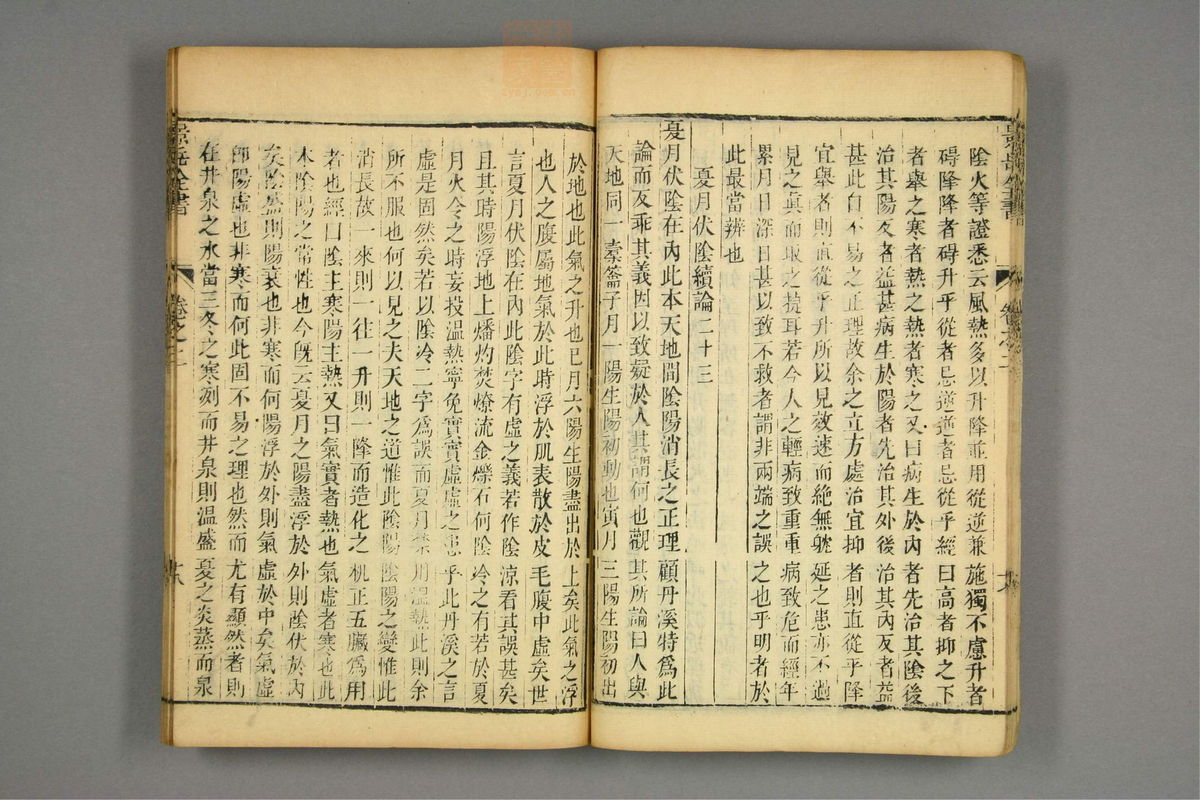 景岳全書
陰火等證悉云風熱多以升降並用從逆兼施獨不慮升者
碍降降者碍升乎從者忌逆逆者忌從乎經曰高者抑之下
者舉之寒者熱之熱者寒之又曰病生於內者先治其陰後
治其陽反者益甚病生於陽者先治其外後治其內反者益
甚此自不易之正理故余之立方處治宜抑者則直從乎降
宜舉者則直從乎升所以見效速而絶無躭延之患亦不過
見之眞而取之捷耳若今人之輕病致重重病致危而經年
累月日深日甚以致不救者謂非兩端之誤之也乎明者於
此最當辨也
夏月伏陰續論二十三
夏月伏陰在內此本天地間陰陽消長之正理顧丹溪特爲此
論而反乖其義因以致疑於人其謂何也觀其所論曰人與
天地同一橐籥子月一陽生陽初動也寅月三陽生陽初出
於地也此氣之升也巳月六陽生陽盡出於上矣此氣之浮
也人之腹屬地氣於此時浮於肌表散於皮毛腹中虛矣世
言夏月伏陰在內此陰字有虛之義若作陰涼看其誤甚矣
且其時陽浮地上燔灼焚燎流金爍石何陰冷之有若於夏
月火令之時妄投溫熱寧免實實虛虛之患乎此丹溪之言
虛是固然矣若以陰冷二字爲誤而夏月禁用溫熱此則余
所不服也何以見之夫天地之道惟此陰陽陰陽之變惟此
消長故一來則一往一升則一降而造化之機正五臟爲用
者也經曰陰主寒陽主熱又曰氣實者熱也氣虛者寒也此
本陰陽之常性也今旣云夏月之陽盡浮於外則陰伏於內
矣陰盛則陽衰也非寒而何陽浮於外則氣虛於中矣氣虛
即陽虛也非寒而何此固不易之理也然而尤有顯然者則
在井泉之水當三冬之寒冽而井泉則溫盛夏之炎蒸而泉
景岳全書
卷之二
十八